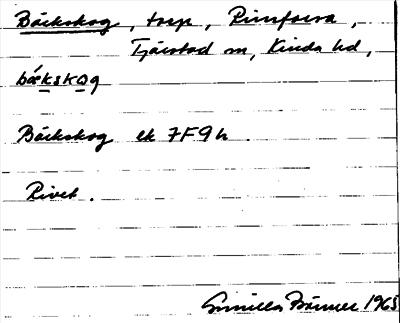 Bäckskog, torp, Rimforsa,
Tjärstad sn, Kinda hd,
bäkskog
Bäckskog ek 7F9h
Rivet.
Gunilla 1965